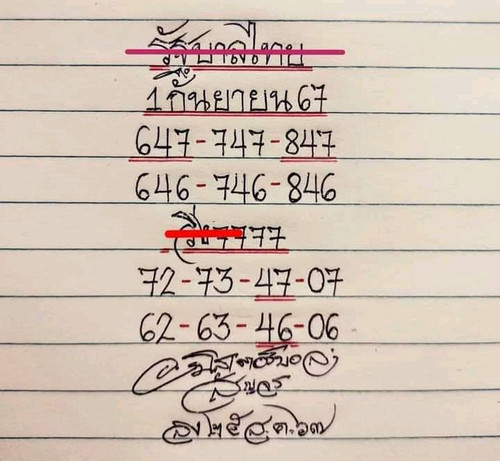 รัฐบาลไทย
1 กันยายน 67
647-747-847
646-746-846
วิ่ง7777
72-73-47-07
62-63-46-06
ส.ค. ๖๗